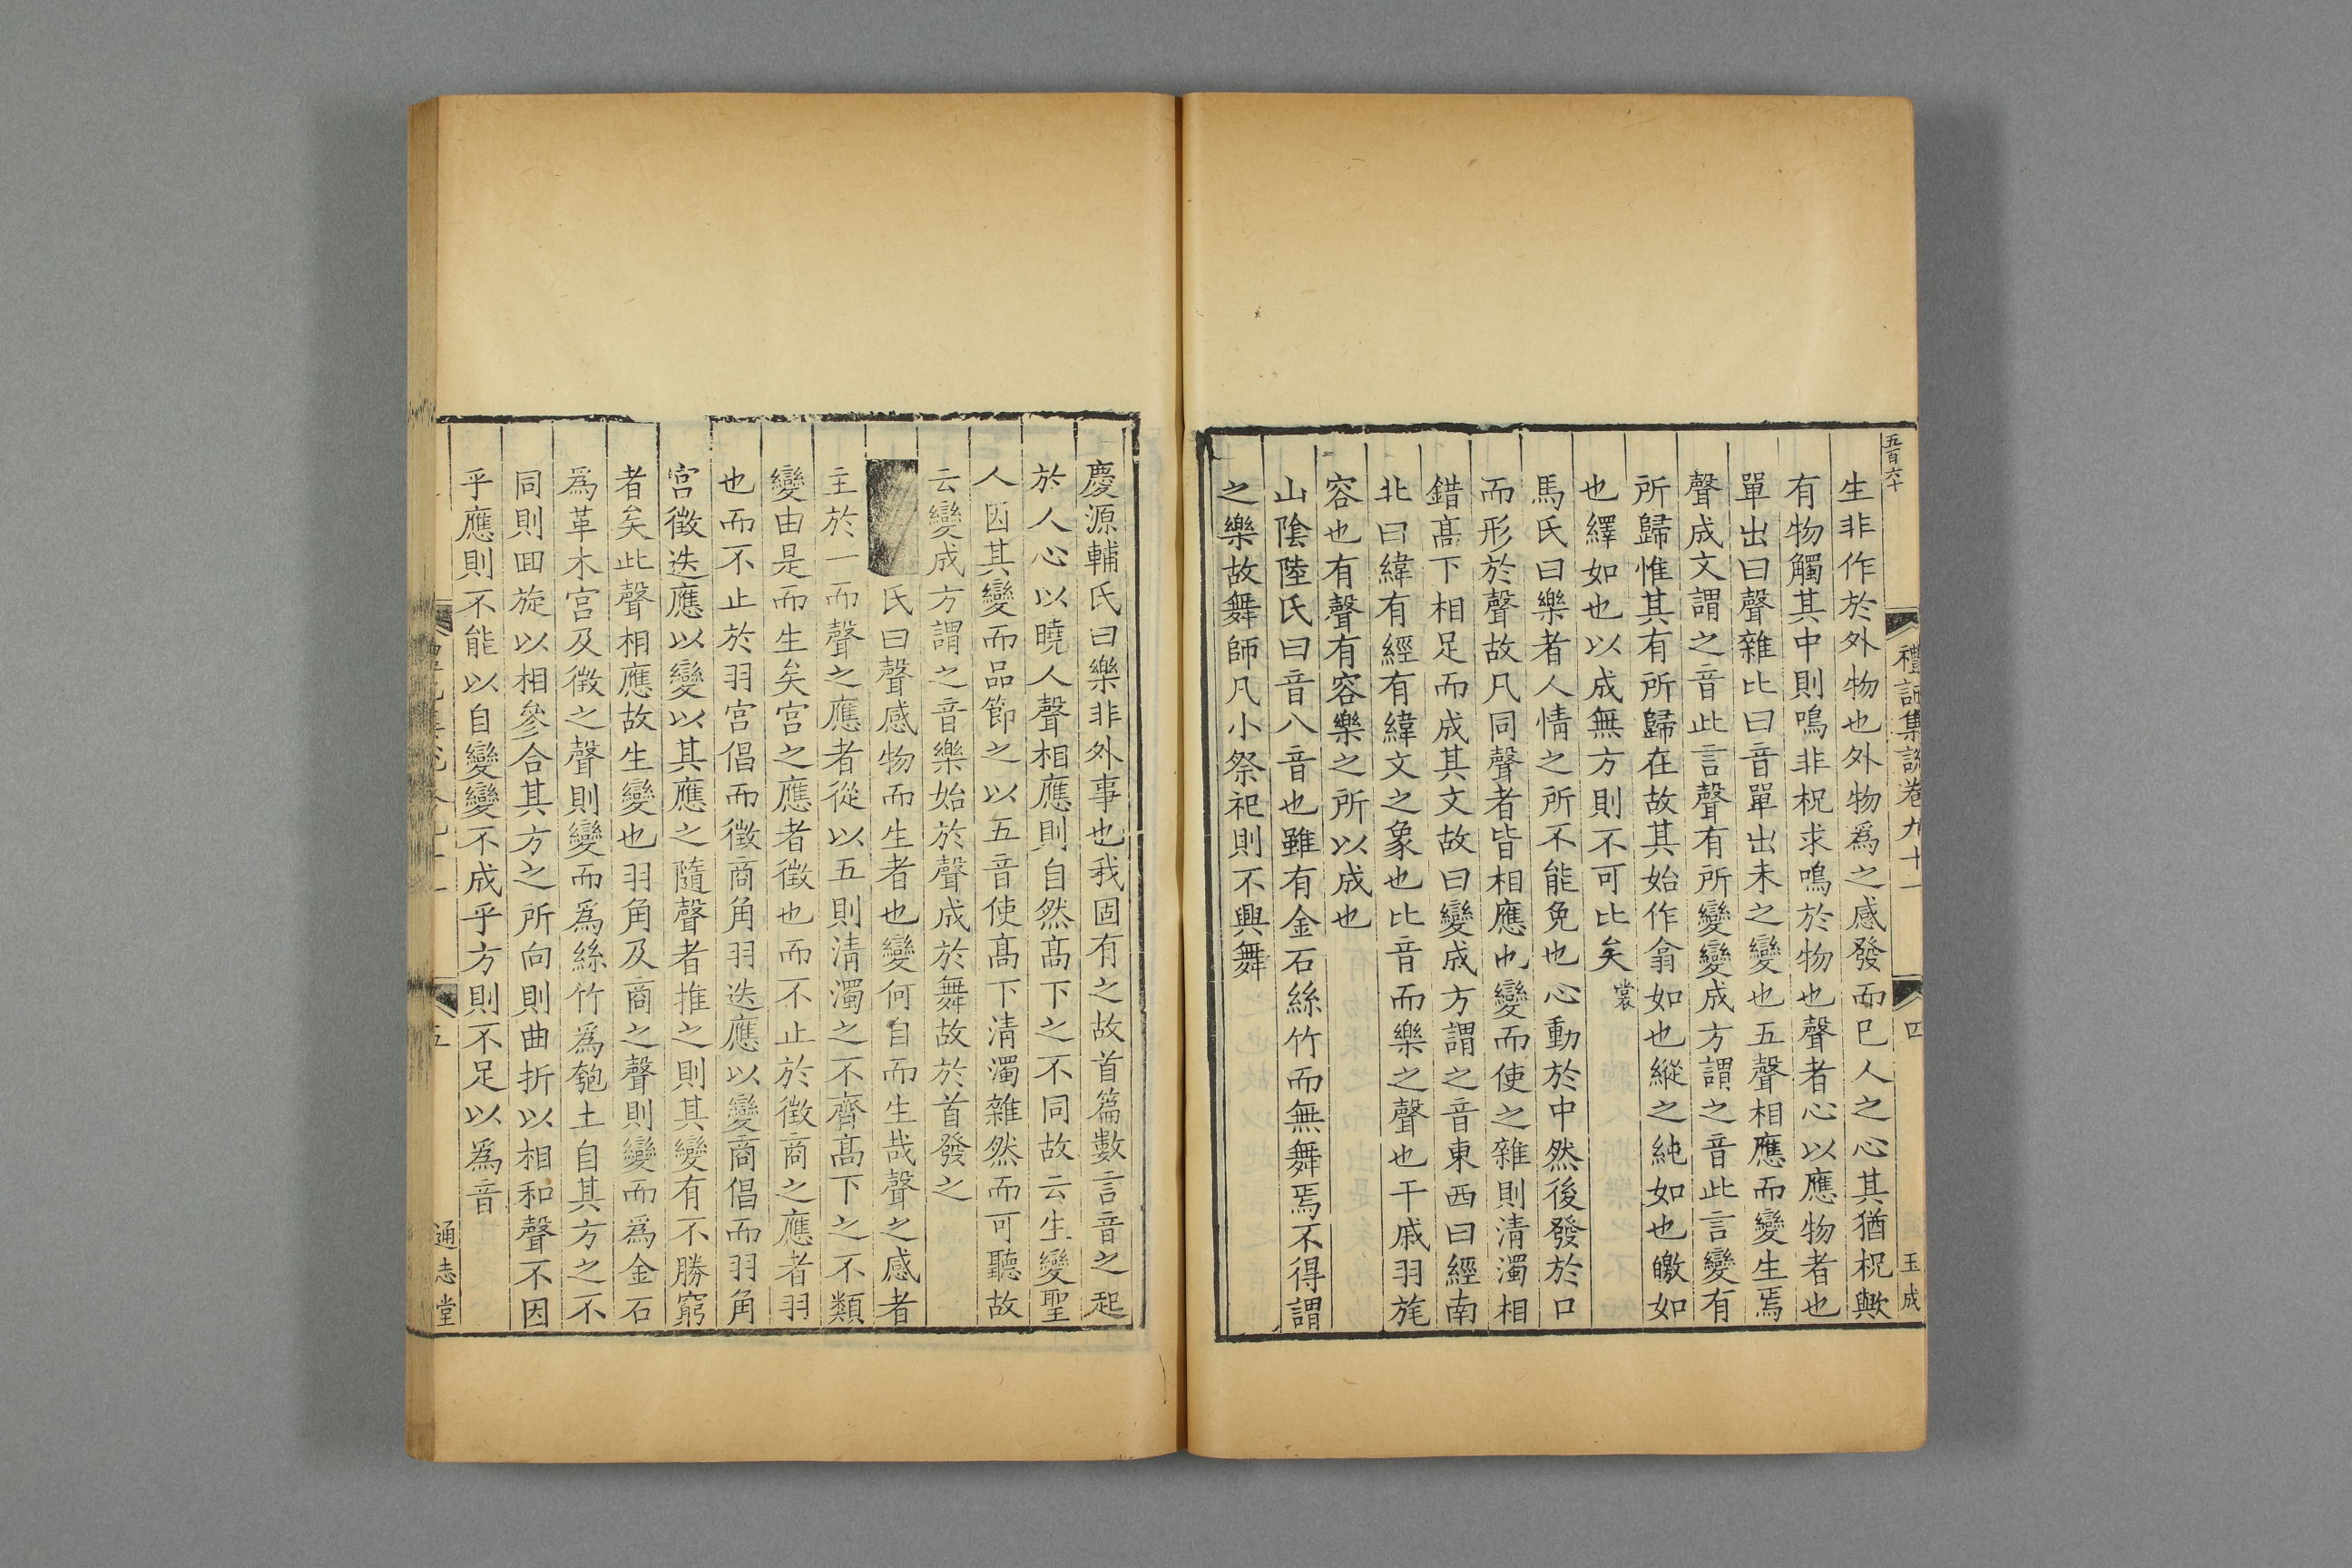 五百六十
禮記集說卷九十一
四
玉成
生非作於外物也外物爲之感發而巳人之心其猶柷歟
有物觸其中則鳴非柷求鳴於物也聲者心以應物者也
單出曰聲雜比曰音單出未之變也五聲相應而變生焉
聲成文謂之音此言聲有所變變成方謂之音此言變有
所歸惟其有所歸在故其始作翕如也縱之純如也皦如
也繹如也以成無方則不可比矣裳
馬氏曰樂者人情之所不能免也心動於中然後發於口
而形於聲故凡同聲者皆相應也變而使之雜則清濁相
錯髙下相足而成其文故曰變成方謂之音東西曰經南
北曰緯有經有緯文之象也比音而樂之聲也干戚羽旄
容也有聲有容樂之所以成也
山陰陸氏曰音八音也雖有金石絲竹而無舞焉不得謂
之樂故舞師凡小祭祀則不興舞
慶源輔氏曰樂非外事也我固有之故首篇數言音之起
於人心以曉人聲相應則自然髙下之不同故云生變聖
人因其變而品節之以五音使髙下清濁雜然而可聽故
云變成方謂之音樂始於聲成於舞故於首發之
氏曰聲感物而生者也變何自而生哉聲之感者
主於一而聲之應者從以五則清濁之不齊髙下之不類
變由是而生矣宮之應者徵也而不止於徵商之應者羽
也而不止於羽宮倡而徵商角羽迭應以變商倡而羽角
宮徵迭應以變以其應之隨聲者推之則其變有不勝窮
者矣此聲相應故生變也羽角及商之聲則變而爲金石
爲革木宮及徵之聲則變而爲絲竹爲匏土自其方之不
同則囬旋以相參合其方之所向則曲折以相和聲不因
乎應則不能以自變變不成乎方則不足以爲音
五
通志堂